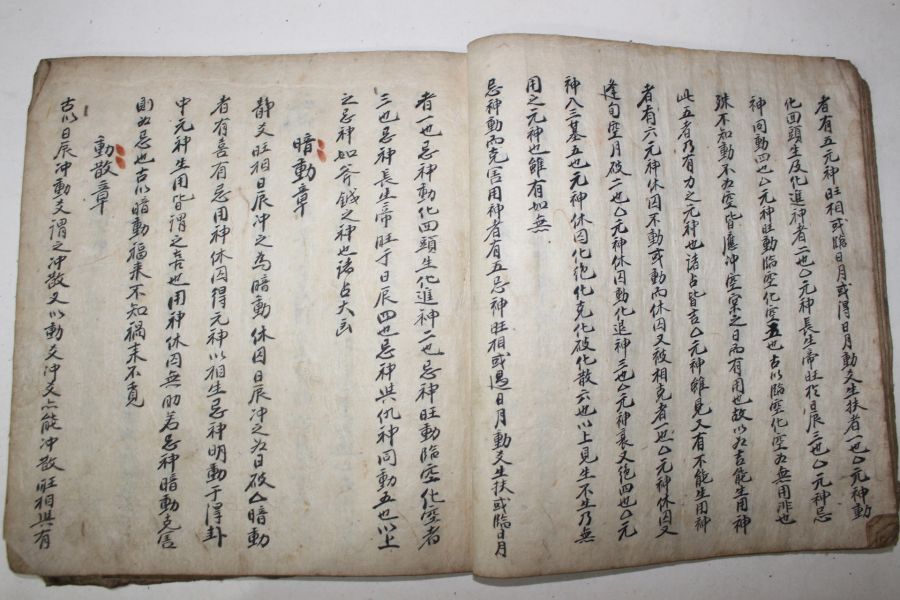 者有五元神旺相或臨日月或得日月動爻生扶者一也△元神動
化回頭生及化進神者二也△元神長生帝旺於日辰三也△元神忌
神同動四也△元神旺動臨空化空五也古以臨空化空為無用非也
殊不知動不為空皆應冲空实之日而有用也故以為吉能生用神
此五者乃有力之元神也諸占皆吉△元神雖見又有不能生用神
者有六元神休囚不動或動而休囚又被相克者一也△元神休囚又
逢旬空月破二也△元神休囚動化退神三也△元神衰又绝四也△元
神入三墓五也元神休囚化绝化克化破化散六也以上見生不生乃無
用之元神也雖有如無
忌神動而克害用神者有五忌神旺相或遇日月動爻生扶或臨日月
者一也忌神動化回頭生化進神二也忌神旺動臨空化空者
三也忌神長生帝旺于日辰四也忌神與仇神同動五也以上
之忌神如斧鉞之神也诸占大凶
暗動章
静爻旺相日辰冲之為暗動休囚日辰冲之為日破△暗動
者有喜有忌用神休囚得元神以相生忌神明動于得卦
中元神生用皆謂之吉也用神休囚無助若忌神暗動克害
則為忌也古以暗動福来不知禍来不覓
動散章
古以日辰冲動爻謂之冲散又以動爻冲爻亦能冲散旺相與有